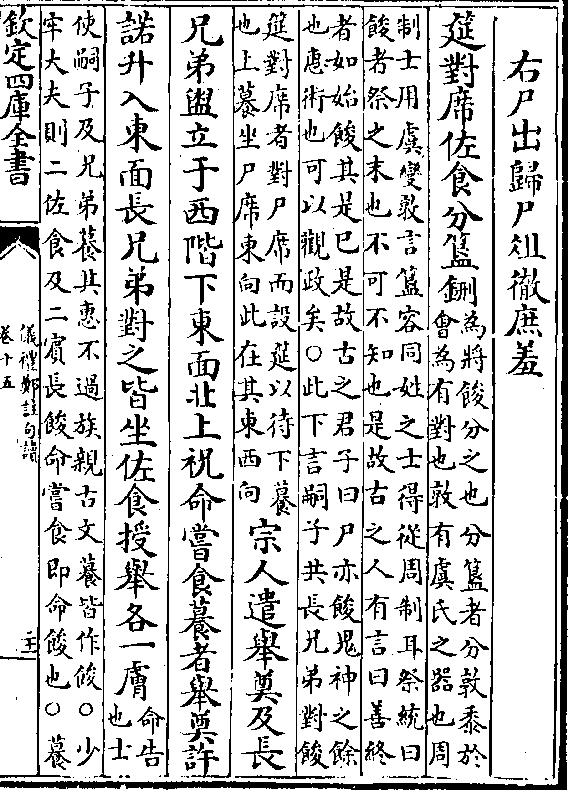 右尸出歸尸俎徹庶羞
筵對席佐食分簋鉶為將餕分之也分簋者分敦黍於
會為有對也敦有虞氏之器也周
制士用虞變敦言簋容同姓之士得從周制耳祭統曰
餕者祭之末也不可不知也是故古之人有言曰善終
者如始餕其是已是故古之君子曰尸亦餕鬼神之餘
也惠術也可以觀政矣○此下言嗣子共長兄弟對餕
筵對席者對尸席而設筵以待下養
也上養坐尸席東向此在其東西向
宗人遣舉奠及長
兄弟盥立于西階下東面北上祝命嘗食養者舉奠許
諾升入東面長兄弟對之皆坐佐食授舉各一膚命告
也士
使嗣子及兄弟養其惠不過族親古文養皆作餕○少
牢大夫則二佐食及二賔長餕命嘗食即命餕也○養
欽定四庫全書
儀禮鄭註句讀
卷十五